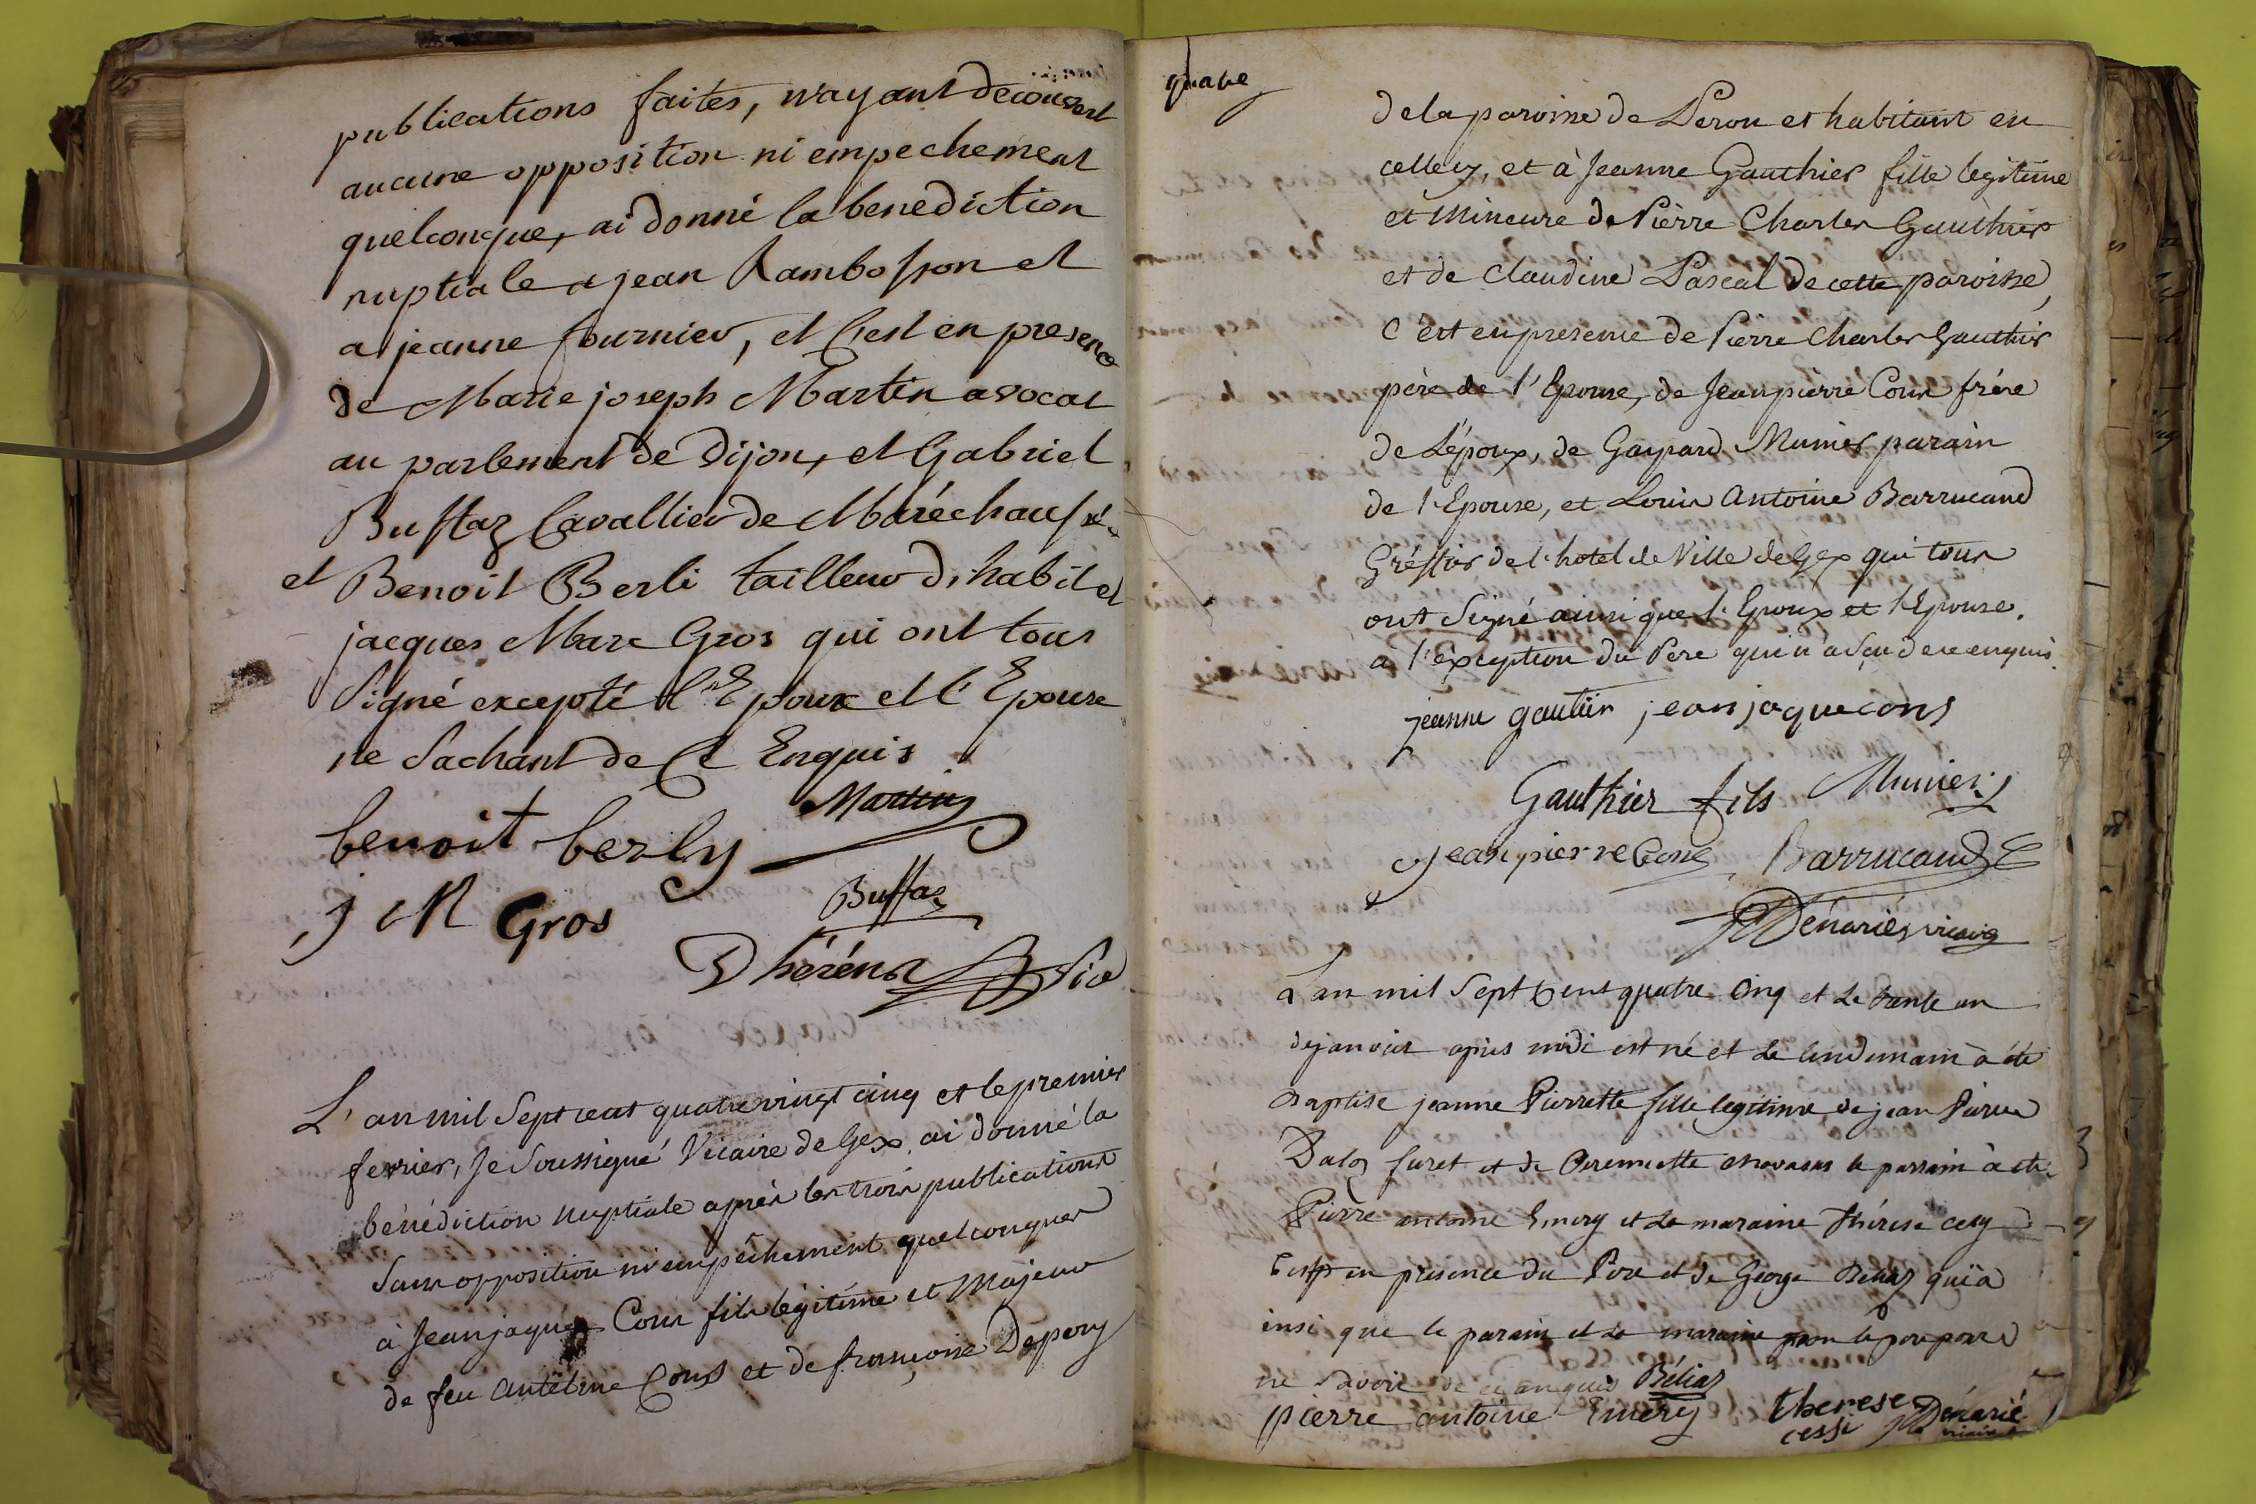 publications faites, n'ayant decouvert
aucune opposition ni empechement
quelconque, ai donné la benediction
nuptiale a jean Rambosson et
a jeanne fournier, et C'est en presence
de Marie joseph Martin avocat
au parlement de Dijon, et Gabriel
Buffaz Cavallier de Maréchaussé
et Benoit Berli tailleur d'habit et
jacques Marc Gros qui ont tous
Signé excepté l'Epoux et l'Epouse
ne Sachant de Ce Enquis
Martin
benoit berly
Buffaz
j M Gros
Dhéréns Vic
L'an mil Sept cent quatrevingt cinq et le premier
fevrier, Je Soussigné Vicaire de Gex ai donné la
bénédiction nuptiale après les trois publications
Sans opposition ni empêchement quelconques
à Jeanjaques Cons fils légitime et Majeur
de feu Antelme Cons et de françoise Depery
quatre
de la paroisse de Peron et habitant en
celle cy, et à Jeanne Gauthier fille legitime
et Mineure de Pièrre Charles Gauthier
et de Claudine Pascal de cette paroisse,
C'est en presence de Pierre Charles Gauthier
père de l'Epouse, de Jeanpièrre Cons frére
de L'époux, de Gaspard Munier parain
de l'Epouse, et Louis Antoine Barrucand
Gréffier de l'hotel de Ville de Gex qui tous
ont Signé ainsi que l'Epoux et l'Epouse.
a l'exception du Pere qui n'a Sçu de ce enquis.
jeanne gautier jean jaque cons
Gauthier fils Munier
Jean pierre Cons Barrucand
Dénarié vicaire
L'an mil Sept Cent quatre Cinq et Le trante un
de janvier apres midi est né et Le lendemain à été
Baptisé jeanne Pierrette fille legitime de jean Pierre
Daloz furet et de le parrain à été
Pierre antoine Emery et La maraine thérese cesy
C'est en présence du Pere et de George Béliaz qui a
insi que le parain et La maraine non le pere pour
ne Savoir de ce anquis Béliaz
pierre antoine Emery therese cessi Dénarié
vicaire